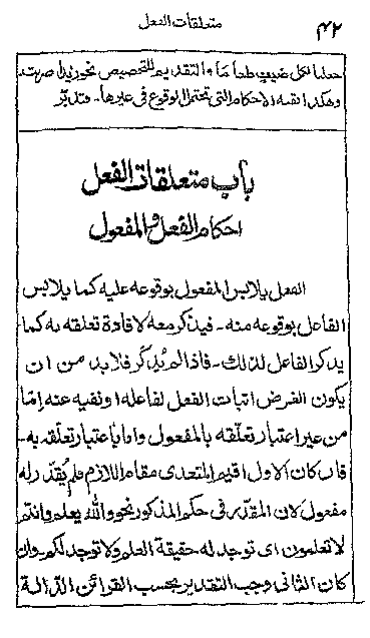 ٤٢ متعلقات الفعل
جعلنا لكل ضيف طعاما والتقديم للتخصيص نحو زيدا ضربت
وهكذا بقية الاحكام التى تحتمل الوقوع فى غيرها ـ وتدبّر
باب متعلقات الفعل
احكام الفعل والمفعول
الفعل يلابس المفعول بوقوعه عليه كما يلابس
الفاعل بوقوعه منه ـ فيذكر معه لافادة تعلقه به كما
يذكر الفاعل لذلك ـ فاذا لم يُذكر فلا بد من ان
يكون الغرض اثبات الفعل لفاعله او نفيه عنه إمّا
من غير اعتبار تعلّقه بالمفعول وإما باعتبار تعلّقه به ـ
فان كان الاول اقيم المتعدى مقام اللازم فلم يُقدّر له
مفعول لان المقدّر فى حكم المذكور نحو والله يعلم وانتم
لا تعلمون اى توجد له حقيقة العلم ولا توجد لكم وان
كان الثانى وجب التقدير بحسب القرائن الدّالة